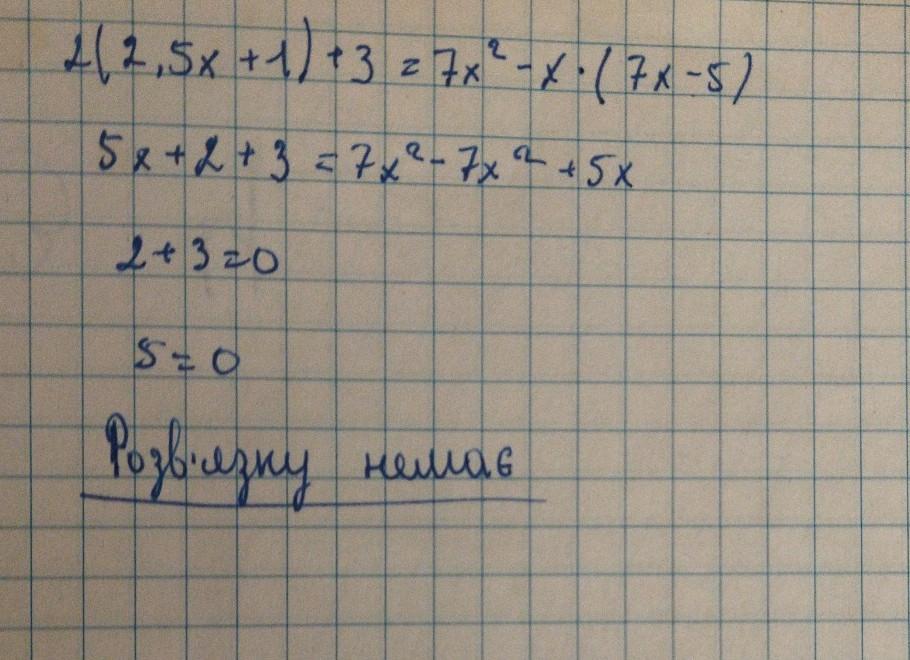 2(2,5x+1)+3=7x²-x·(7x-5)
5x+2+3=7x²-7x²+5x
2+3=0
5=0
Розв'язку немає